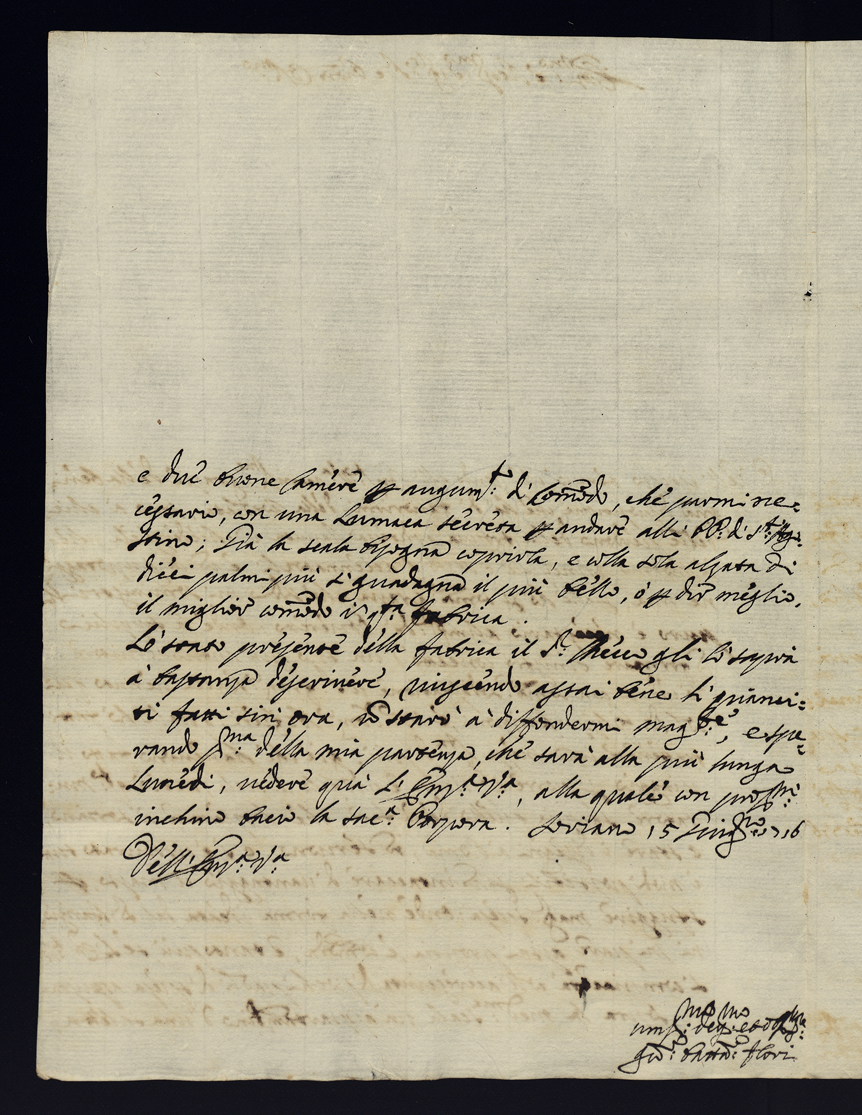 e due buone Camere p augum.to di Comodo, che parmi nec=
cessario, con una Lumaca secreta p andare alli PP. di S.t Ago=
stino; Già la scala bisogna coprirla, e colla sola alzata di
dieci palmi più si guadagna il più bello, ò p dir meglio,
il miglior comodo di q.sta fabrica.
Lo stato presente della fabrica il S.r Checco gli lo saprà
à bastanza descrivere, riuscendo assai bene li
ti fatti sin ora, Io starò à diffondermi mag.te, e spe=
rando p.ma della mia partenza, che sarà alla più lunga
Lunedì, vedere quà l'Em.a V.a, alla quale con prof.mo
inchino bacio la sac.a Porpora. Soriano 15 Giug.no 1716
Dell'Em.a V.a
Um.mo Dev.mo et Obblig.mo
Gio: Batta: Flori